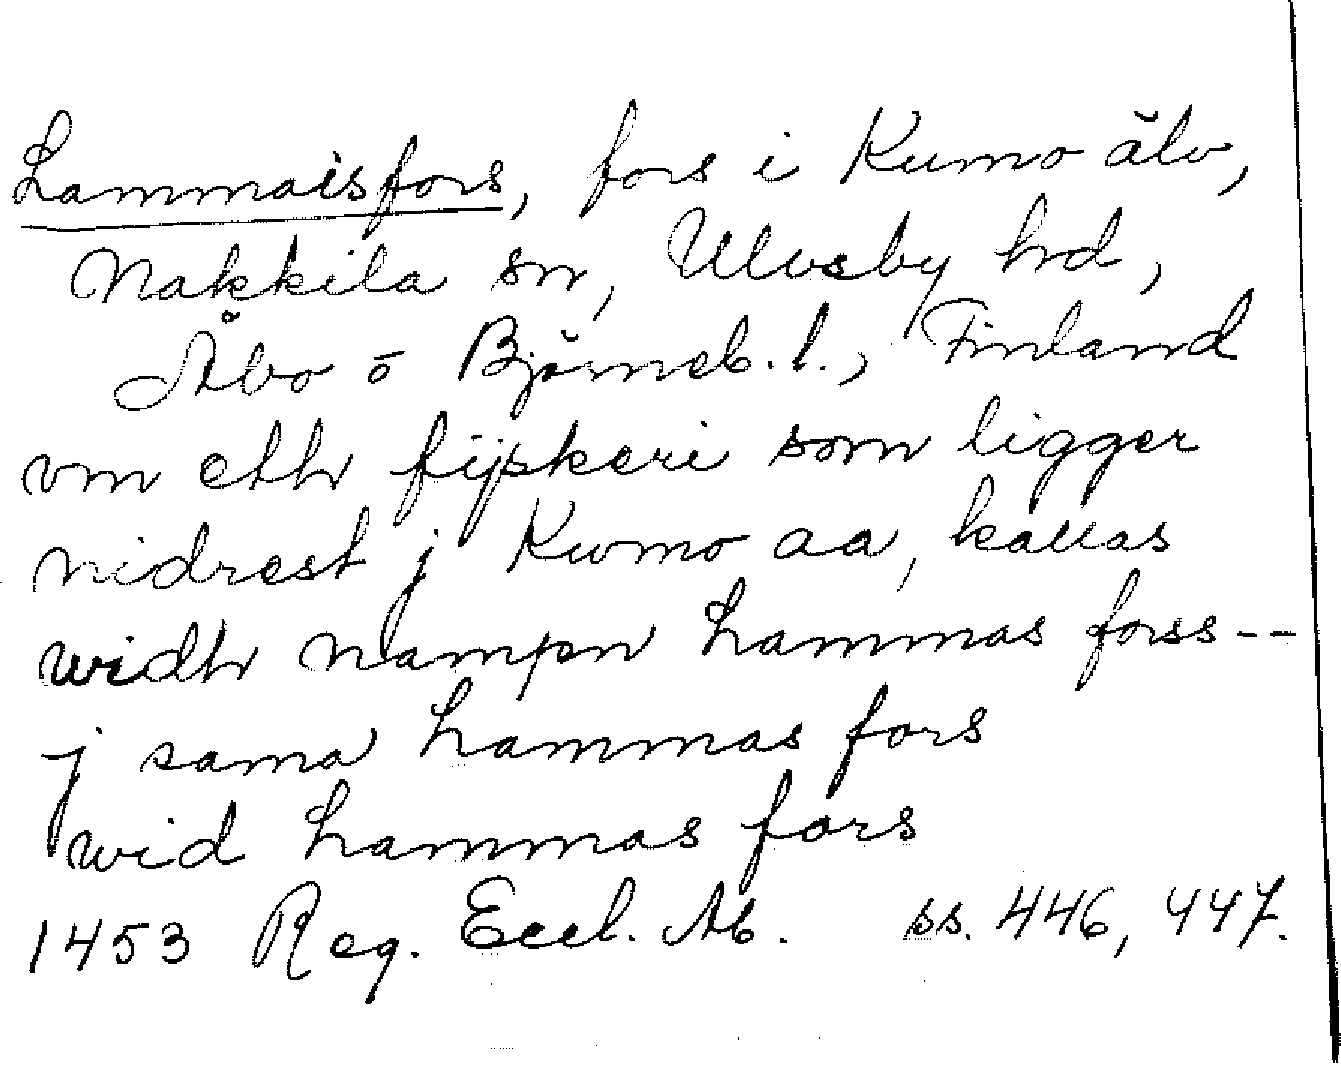 Lammaisfors, fors i Kumo älv,
Nakkila sn, Ulvsby hd,
Åbo o Björneb. l., Finland
vm eth fijskeri som ligger
nidrest j Kwmo aa, kallas
widh nampn Lammas forss--
j sama Lammas fors
wid Lammas fors
1453 Reg. Eccl. Ab. ss. 446, 447.